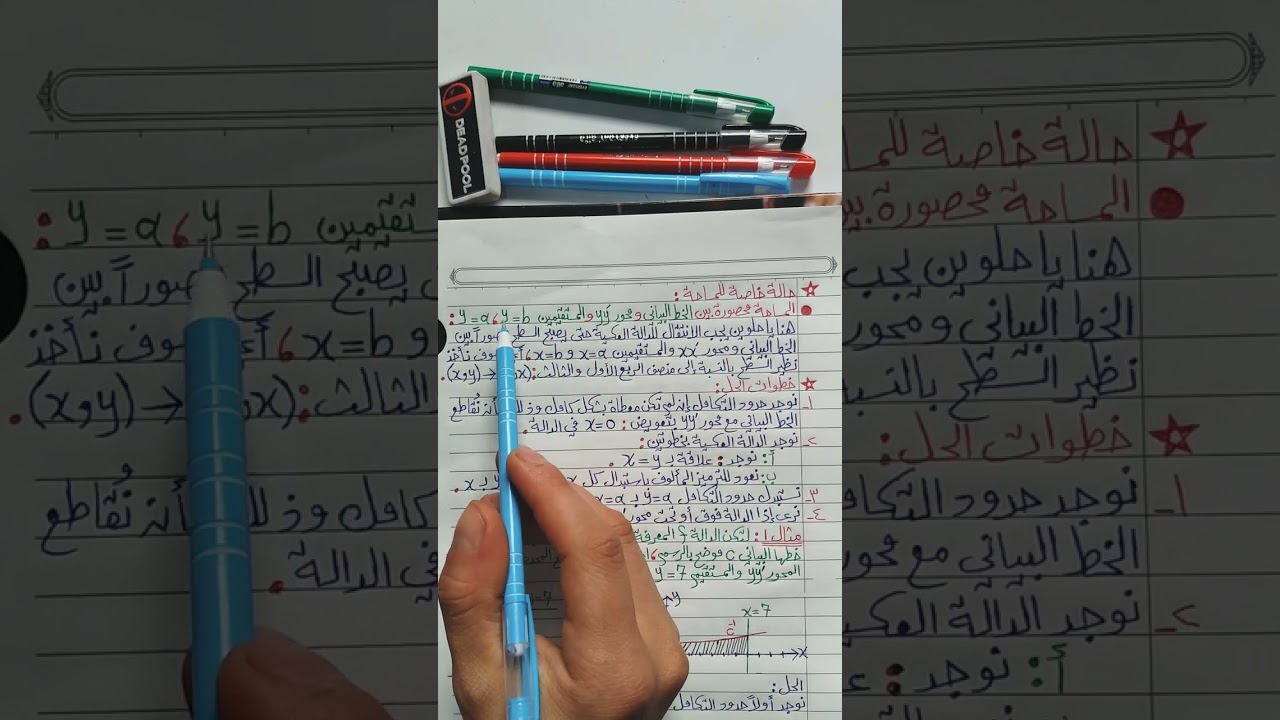 DEADPOOL
حالة خاصة للمساحة:
المساحة محصورة بين الخط البياني ومحور yy' والمستقيمين y = a, y = b:
هنا يا حلوين يجب الانتقال للدالة العكسية حتى يصبح السطح محصوراً بين
الخط البياني ومحور xx' والمستقيمين x = a و x = b، أي سوف نأخذ
نظير السطح بالنسبة إلى منصف الربع الأول والثالث: (x و y) → (y و x).
خطوات الحل:
1- نوجد حدود التكامل إن لم تكن معطاة بشكل كامل وذلك بأنه نُقاطع
الخط البياني مع محور yy' بتعويض: x = 0 في الدالة.
2- نوجد الدالة العكسية بخطوتين:
أ: نوجد: علاقة x = y بـ.
ب: نعود للترميز المألوف باستبدال كل x بـ y بـ x.
3- نستبدل حدود التكامل y = a بـ x = a
4- نرى إذا الدالة فوق أو تحت محور
مثال 1: لتكن الدالة f المعرفة
خطها البياني C موضح بالرسم
المحور yy' والمستقيم y = 7
y
x = 7
C
x
الحل:
نوجد أولاً حدود التكامل